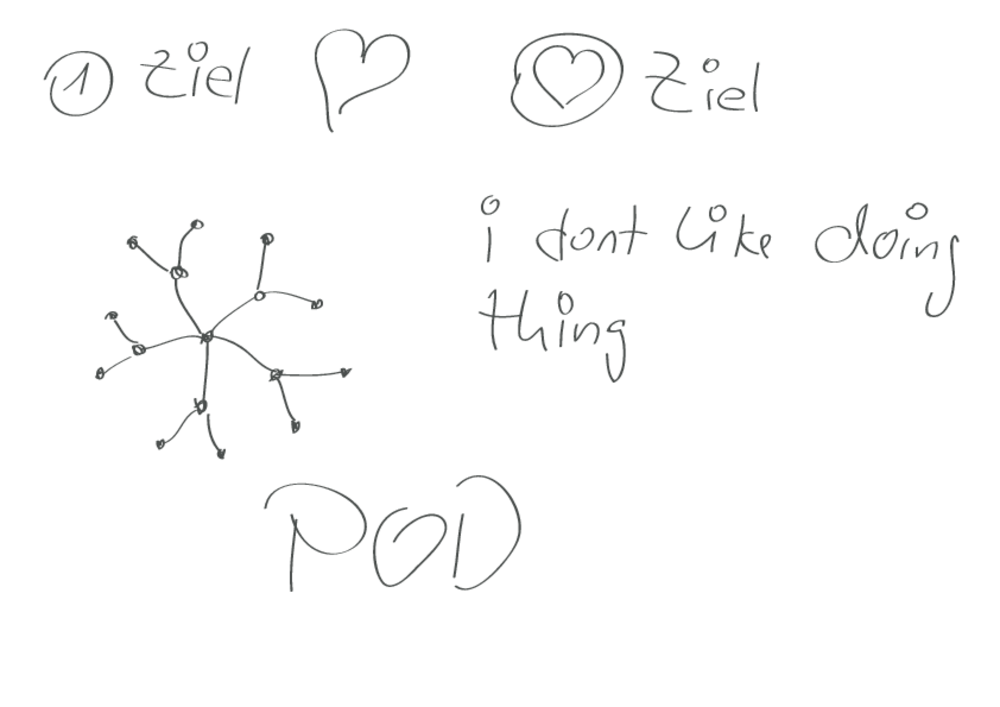 1 Ziel Ziel
i dont like doing
thing
POD